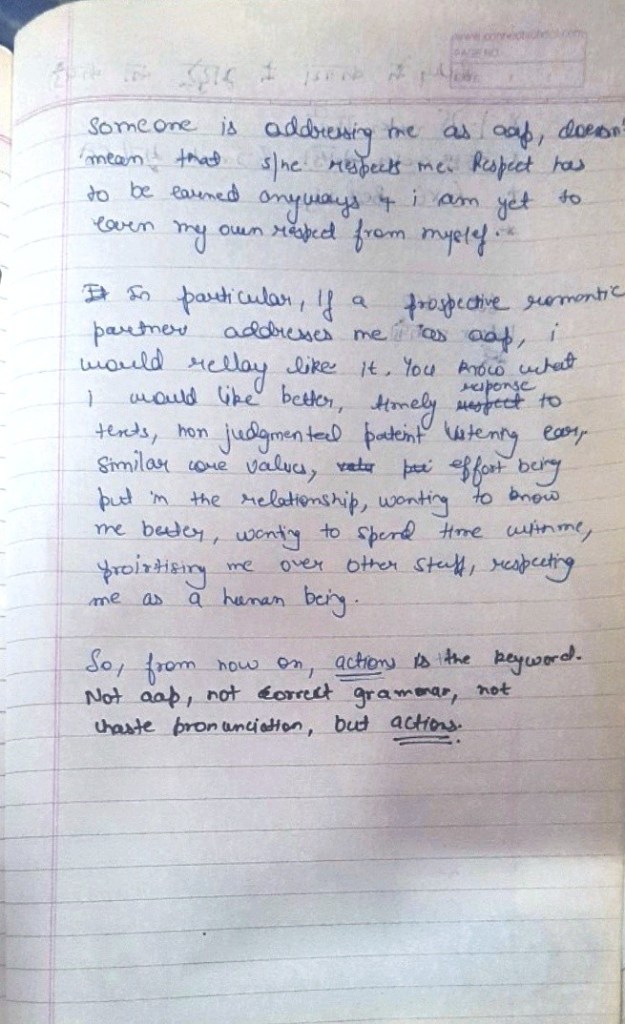 Someone is addressing me as aap, doesn't
mean that s/he respects me. Respect has
to be earned anyways & i am yet to
earn my own respect from myself.
In particular, If a prospective romantic
partner addresses me as aap, i
would rellay like it. You know what
i would like better, timely response to
texts, non judgmental patient listening ear,
similar core values, effort being
put in the relationship, wanting to know
me better, wanting to spend time with me,
proirtising me over other stuff, respecting
me as a human being.
So, from now on, actions is the keyword.
Not aap, not correct grammar, not
chaste pronunciation, but actions.